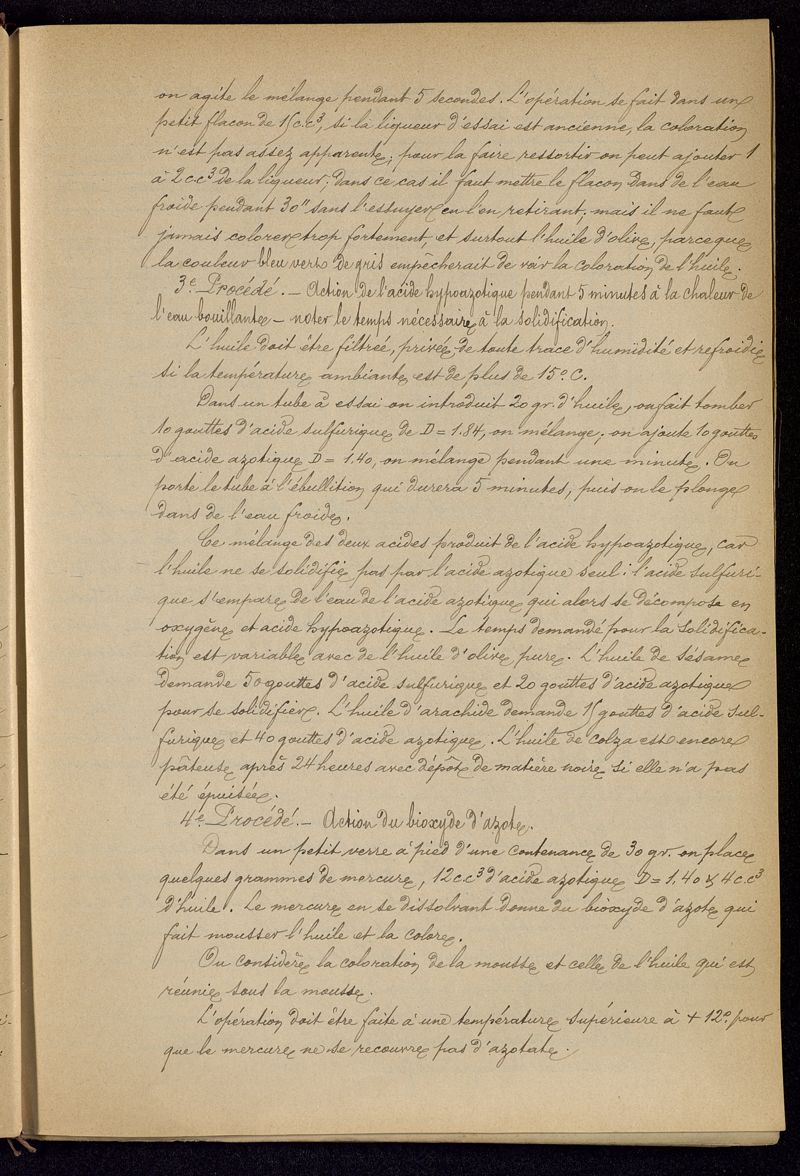 on agite le mélange pendant 5 secondes. L'opération se fait dans un
petit flacon de 15 c.c³, si la liqueur d'essai est ancienne, la coloration
n'est pas assez apparente; pour la faire ressortir on peut ajouter 1
à 2 c.c³ de la liqueur; dans ce cas il faut mettre le flacon dans de l'eau
froide pendant 30" sans l'essuyer en l'en retirant, mais il ne faut
jamais colorer trop fortement, et surtout l'huile d'olive, parceque
la couleur bleu vert de gris empêcherait de voir la coloration de l'huile.
3e Procédé. — Action de l'acide hypoazotique pendant 5 minutes à la chaleur de
l'eau bouillante — noter le temps nécessaire à la solidification.
L'huile doit être filtrée, privée de toute trace d'humidité et refroidie
si la température ambiante est de plus de 15° C.
Dans un tube à essai on introduit 20 gr. d'huile, on fait tomber
10 gouttes d'acide sulfurique de D = 1.84, on mélange; on ajoute 10 gouttes
d'acide azotique D = 1.40, on mélange pendant une minute. On
porte le tube à l'ébullition qui durera 5 minutes, puis on le plonge
dans de l'eau froide.
Ce mélange des deux acides produit de l'acide hypoazotique, car
l'huile ne se solidifie pas par l'acide azotique seul: l'acide sulfuri-
que s'empare de l'eau de l'acide azotique qui alors se décompose en
oxygène et acide hypoazotique. Le temps demandé pour la solidifica-
tion est variable avec de l'huile d'olive pure. L'huile de sésame
demande 50 gouttes d'acide sulfurique et 20 gouttes d'acide azotique
pour se solidifier. L'huile d'arachide demande 15 gouttes d'acide sul-
furique et 40 gouttes d'acide azotique. L'huile de colza est encore
pâteuse après 24 heures avec dépôt de matière noire si elle n'a pas
été épuisée.
4e Procédé. — Action du bioxyde d'azote.
Dans un petit verre à pied d'une contenance de 30 gr. on place
quelques grammes de mercure, 12 c.c³ d'acide azotique D = 1.40 & 4 c.c³
d'huile. Le mercure en se dissolvant donne du bioxyde d'azote qui
fait mousser l'huile et la colore.
On considère la coloration de la mousse et celle de l'huile qui est
réunie sous la mousse.
L'opération doit être faite à une température supérieure à + 12° pour
que le mercure ne se recouvre pas d'azotate.